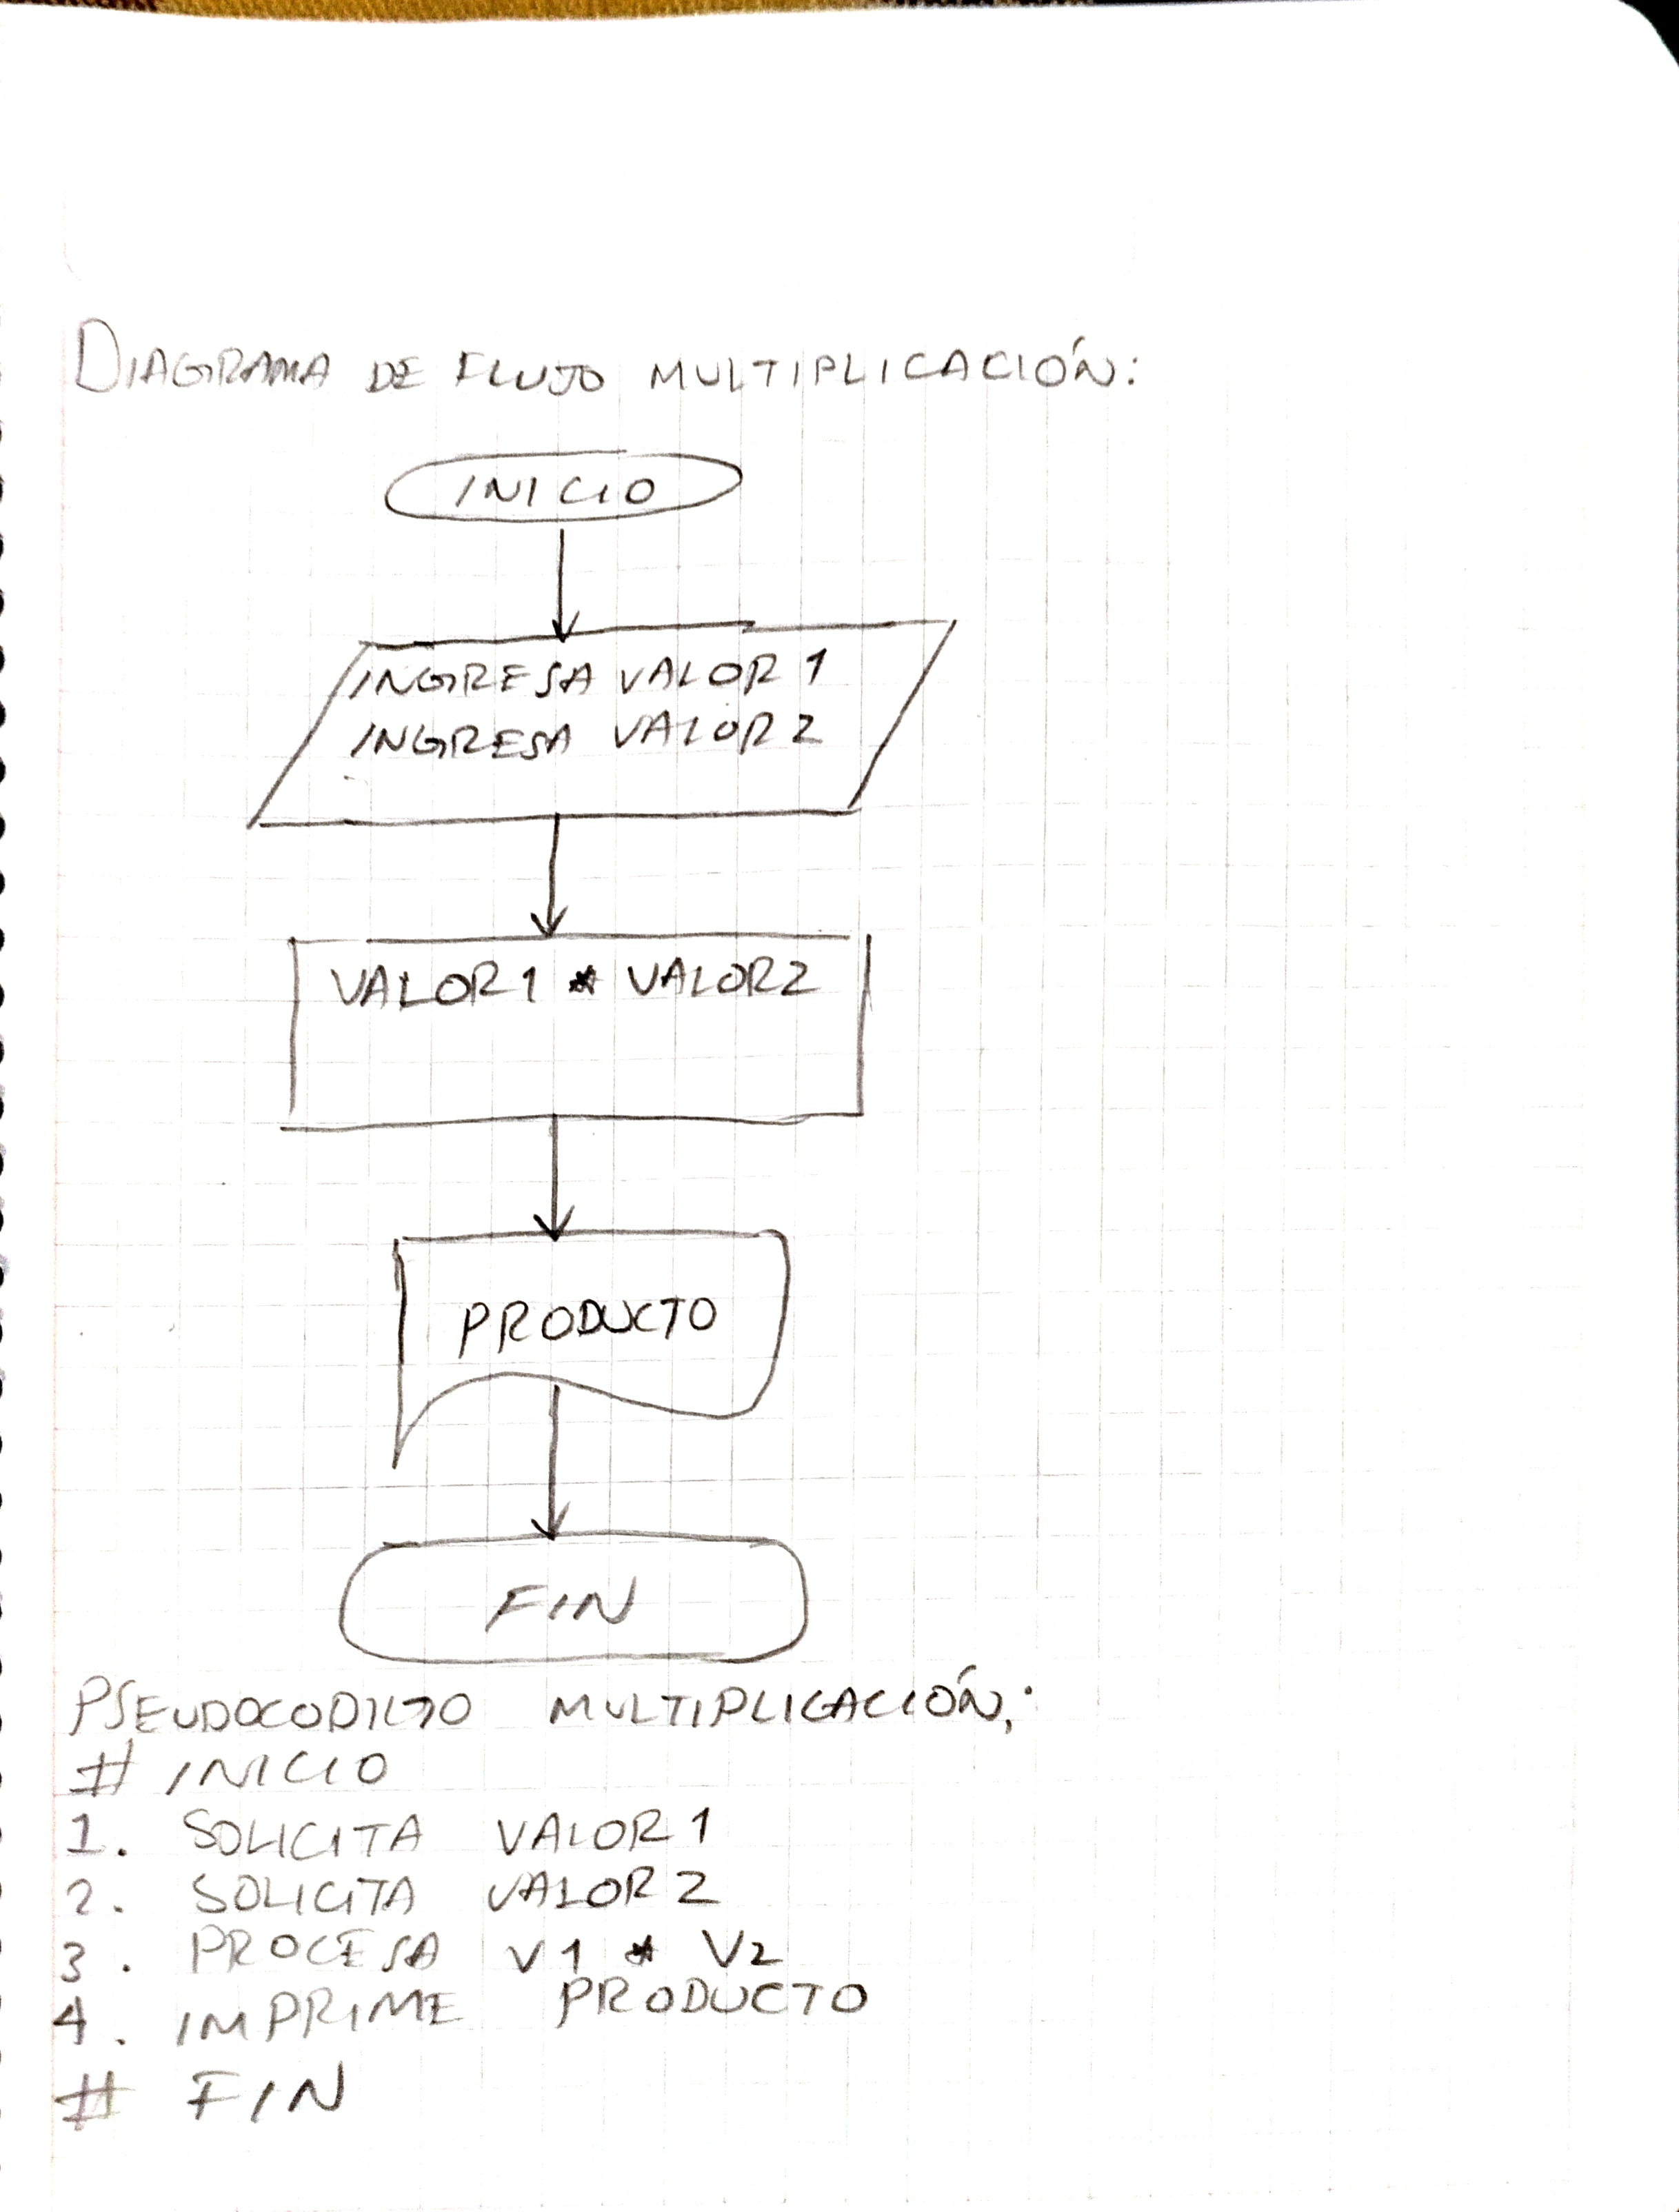 DIAGRAMA DE FLUJO MULTIPLICACIÓN:
INICIO
INGRESA VALOR 1
INGRESA VALOR 2
VALOR1 * VALOR2
PRODUCTO
FIN
PSEUDOCODIGO MULTIPLICACIÓN:
# INICIO
1. SOLICITA VALOR 1
2. SOLICITA VALOR 2
3. PROCESA V1 * V2
4. IMPRIME PRODUCTO
# FIN